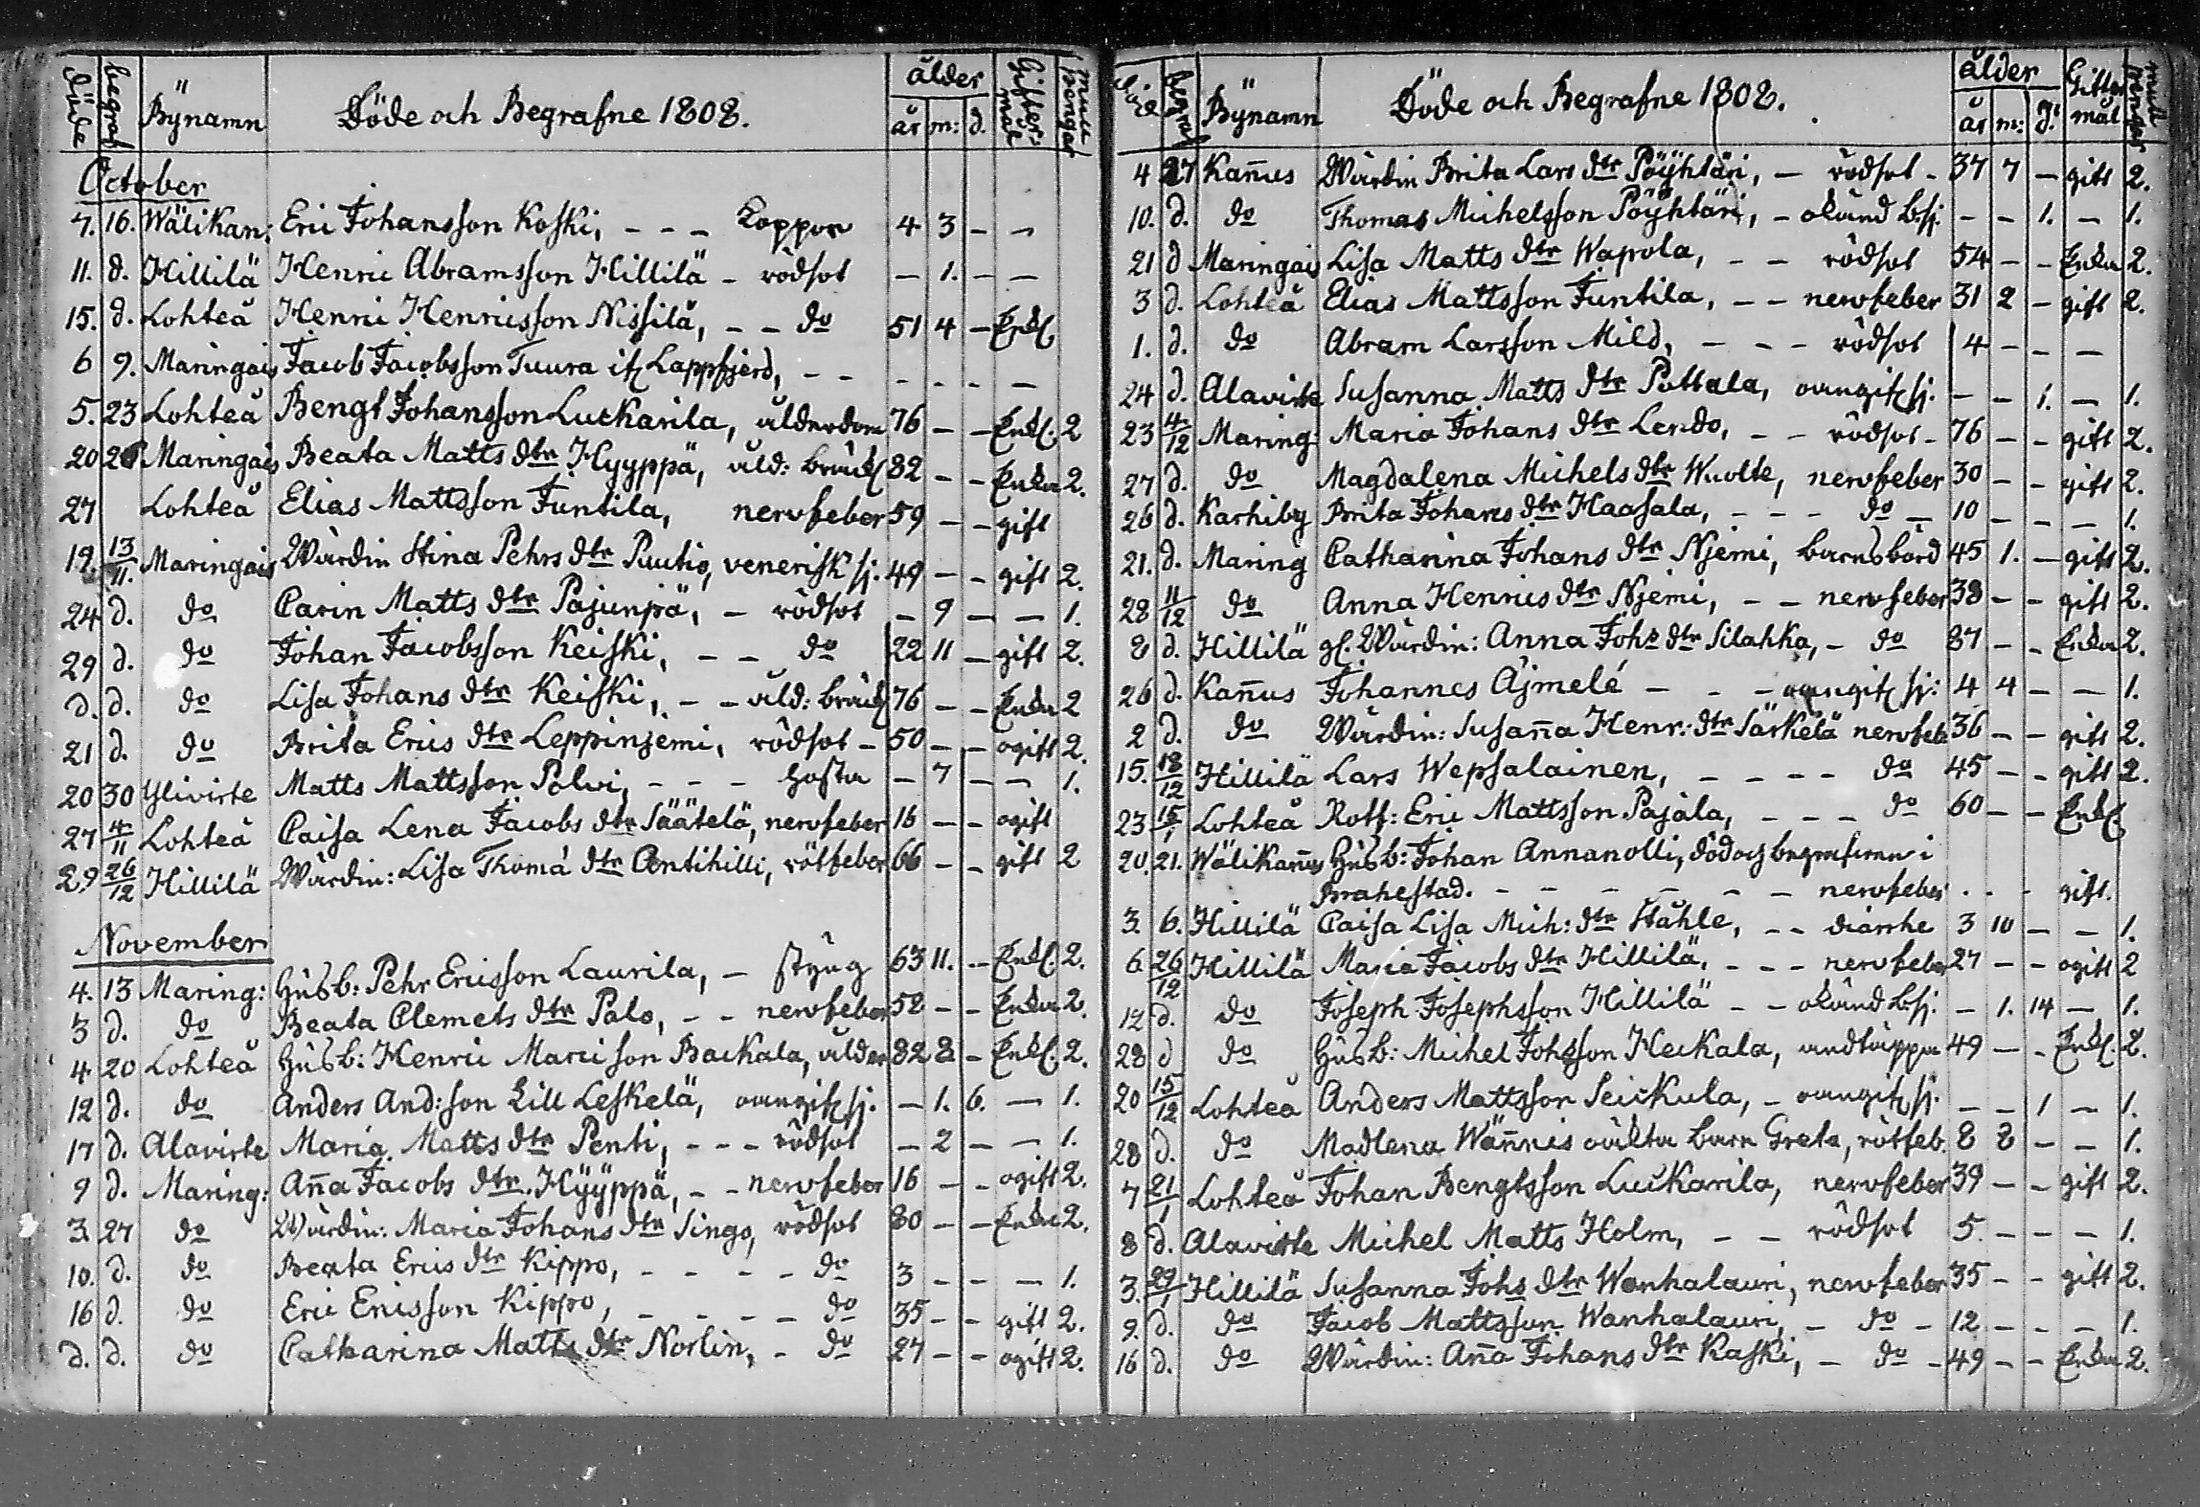 döde begraf Bÿnamn Döde och Begrafne 1808. ålder år m: d. Gifter: mål
October
7. 16. Wälikan: Eric Johansson Koski, - - - Koppor 4 3 - -
11. d. Hillilä Henric Abramsson Hillilä - rödsot - 1. - -
15. d. Lohteå Henric Henricsson Nissilä, - - do 51 4 - Enkl
6 9. Maringais Jacob Jacobsson Tuura if Lappfjerd, - - - - - - -
5. 23 Lohteå Bengt Johansson Luckarila, ålderdom 76 - - Enkl. 2
20 Maringais Beata Matts dtr Hyyppä, åld: bräckl 82 - - Enka 2.
27 Lohteå Elias Mattsson Juntila, nervfeber 59 - - gift
19. 13/11. Maringais Wärdin Stina Pehrs dtr Puutio, venerisk sj. 49 - - gift 2.
24 d. do Carin Matts dtr Pajunpä, - rödsot - 9 - - 1.
29 d. do Johan Jacobsson Keiski, - - do 22 11 - gift 2.
d. d. do Lisa Johans dtr Keiski, - - åld: bräckl 76 - - Enka 2
21 d. do Brita Erics dtr Leppinjemi, rödsot - 50 - - ogift 2.
20 30 Ylivirte Matts Mattsson Polvi, - - - hosta - 7 - - 1.
27 4/11 Lohteå Caisa Lena Jacobs dtr Säätelä, nervfeber 16 - - ogift
29 26/12 Hillilä Wärdin: Lisa Thomæ dtr Antihilli, rötfeber 66 - - gift 2
November
4. 13 Maring: Husb: Pehr Ericsson Laurila, - styng 63 11. - Enkl. 2.
3 d. do Beata Clemets dtr Palo, - - nervfeber 52 - - Enka 2.
4 20 Lohteå Husb: Henric Marci son Backala, ålder 82 8 - Enkl. 2.
12 d. do Anders And: son Lill Leskelä, oangif sj. - 1. 6. - 1.
17 d. Alavirte Maria Matts dtr Penti, - - - rödsot - 2 - - 1.
9 d. Maring: Aña Jacobs dtr Hÿÿppä, - - nervfeber 16 - - ogift 2.
3. 27 do Wärdin: Maria Johans dtr Singo, rödsot 80 - - Enka 2.
10. d. do Beata Erics dtr Kippo, - - - - do 3 - - - 1.
16 d. do Eric Ericsson Kippo, - - - - do 35 - - gift 2.
d. d. do Catharina Matts dtr Norlin, - do 27 - - ogift 2.
begraf Bÿnamn Döde och Begrafne 1808. ålder år m: d: Gifter mål
4 27 Kañus Wärdin Brita Lars dtr Pöÿhtäri, - rödsot - 37 7 - gift 2.
10. d. do Thomas Michelsson Pöÿhtäri, - okänd bsj. - - 1. - 1.
21 d Maringais Lisa Matts dtr Wapola, - - rödsot 54 - - Enka 2.
3 d. Lohteå Elias Mattsson Juntila, - - nervfeber 31 2 - gift 2.
1. d. do Abram Larsson Mild, - - - rödsot 4 - - -
24 d. Alavirte Susanna Matts dtr Pottala, oangif sj. - - 1. - 1.
23 4/12 Maring: Maria Johans dtr Lendo, - - rödsot - 76 - - gift 2.
27 d. do Magdalena Michels dtr Wuolte, nervfeber 30 - - gift 2.
26 d. Karhiby Brita Johans dtr Haasala, - - - do - 10 - - - 1.
21. d. Maring Catharina Johans dtr Njemi, barnsbörd 45 1. - gift 2.
28 11/12 do Anna Henrics dtr Njemi, - - nervfeber 38 - - gift 2.
8 d. Hillilä gl. Wärdin: Anna Johs dtr Silahka, - do 87 - - Enka 2.
26 d. Kañus Johannes Äjmelé - - - oangif sj: 4 4 - - 1.
2 d. do Wärdin: Susaña Henr: dtr Särkelä nervfeb. 36 - - gift 2.
15. 18/12 Hillilä Lars Wepsalainen, - - - - do 45 - - gift 2.
23 15/1 Lohteå Rotf: Eric Mattsson Pajala, - - - do 60 - - Enkl.
20. 21. Wälikañus Husb: Johan Annanolli, död och begrafven i
Brahestad. - - - - - - nervfeber . . - gift.
3. 6. Hillilä Caisa Lisa Mich: dtr Ståhle, - - diarrhe 3 10 - - 1.
6 26/12 Hillilä Maria Jacobs dtr Hillilä, - - - nervfeber 27 - - ogift 2
12 d. do Joseph Josephsson Hillilä - - okänd bsj. - 1. 14 - 1.
28 d do Husb: Michel Johsson Heckala, andtäppa 49 - - Enkl. 2.
20 15/12 Lohteå Anders Mattsson Seickula, - oangif sj. - - 1 - 1.
28 d. do Madlena Wäñnis oäkta barn Greta, rötfeb. 8 8 - - 1.
7 21/1 Lohteå Johan Bengtsson Luckarila, nervfeber 39 - - gift 2.
8 d. Alavirte Michel Matts Holm, - - rödsot 5 - - - 1.
3. 29/1 Hillilä Susanna Johs dtr Wanhalauri, nervfeber 35 - - gift 2.
9. d. do Jacob Mattsson Wanhalauri, - do - 12 - - - 1.
16 d. do Wärdin: Aña Johans dtr Kaski, - do - 49 - - Enka 2.